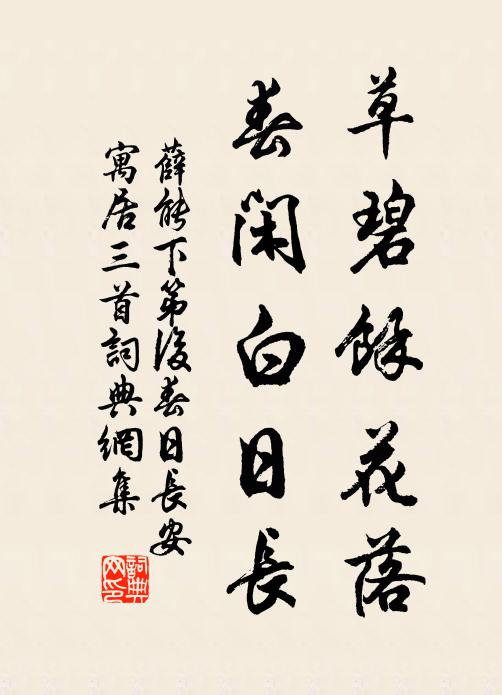 草碧餘花落
春閑白日長
薛能下第後春日長安
寓居三首詞典網集
詞典网印